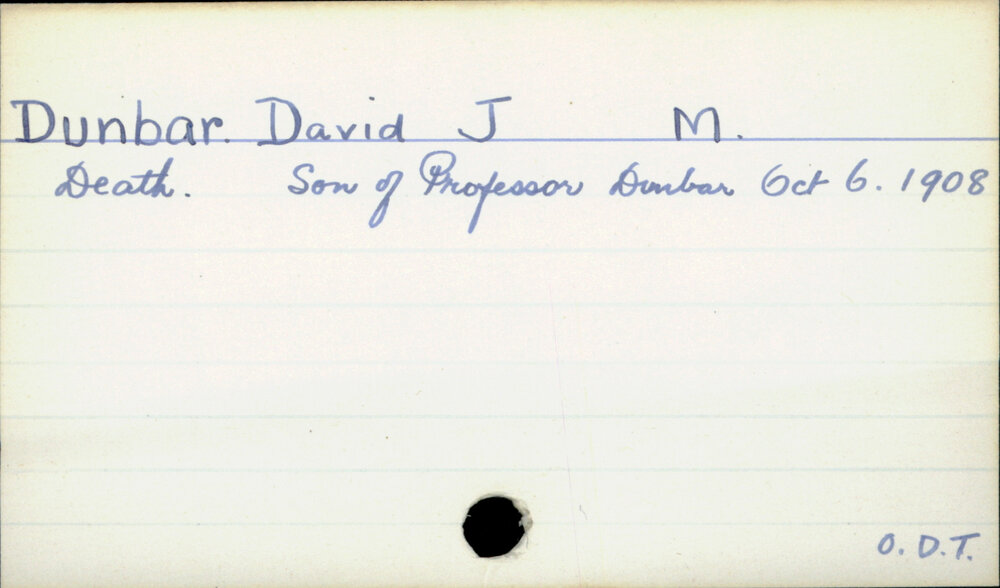 Dunbar. David J M.
Death. Son of Professor Dunbar Oct 6. 1908
O. D.T.